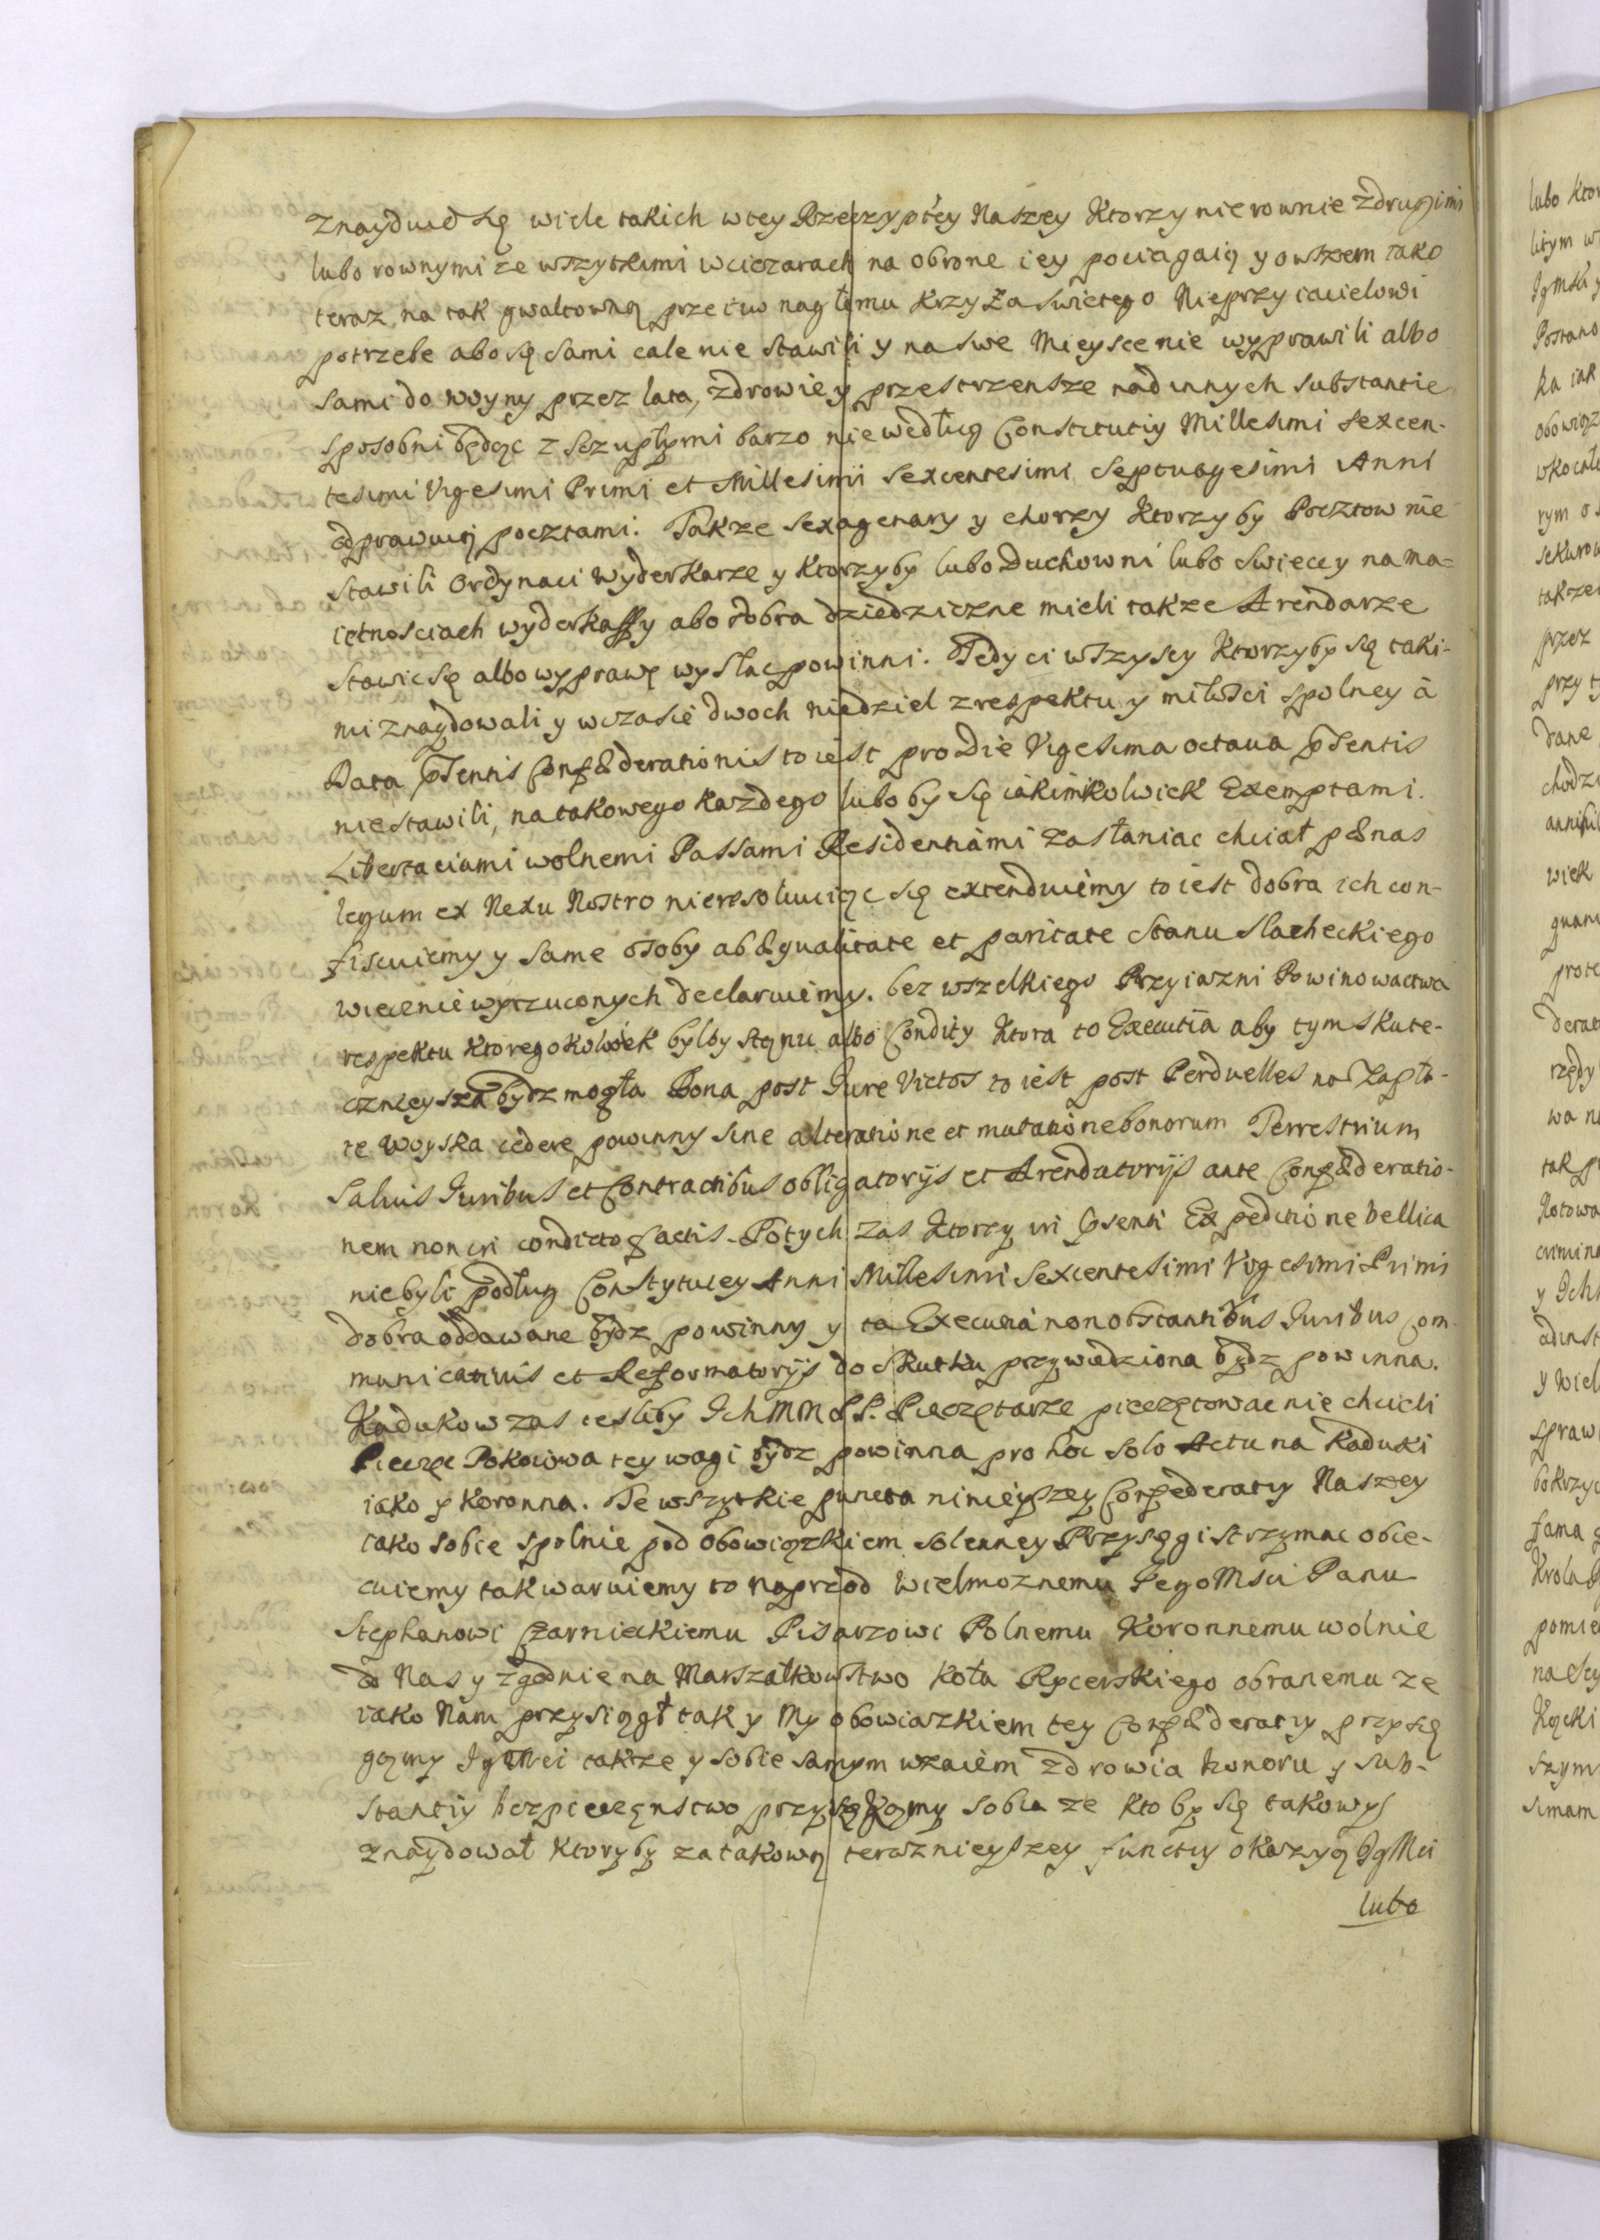 Znayduie się wiele takich w tey Rzeczyptey Naszey Ktorzy nierownie zdrugimi
lubo rownymi ze wszytkimi wciezarach na obrone iey pociagaią y owszem iako
teraz na tak gwaltowną przeciw nagłemu Krzyża swietego Nieprzyiacielowi
potrzebe abo się sami cale nie stawili y na swe Mieysce nie wyprawili albo
sami do woyny przez lata, zdrowie y przestrzensze nad innych substantie
sposobni będąc z szczupłymi barzo nie według Constitutiy Millesimi sexcen-
tesimi Vigesimi Primi et Millesimi Sexcentesimi Septuagesimi Anni
odprawuią pocztami. Takze sexagenary y chorzy Ktorzy by Pocztow nie
stawili Ordynaci Wyderkarze y Ktorzyby lubo Duchowni lubo Swieccy na ma-
iętnosciach wyderkaffy abo dobra dziedziczne mieli takze Arendarze
stawic się albo wyprawę wysłac powinni. Tedy ci wszyscy Ktorzyby się taki-
mi znaydowali y wczasie dwoch niedziel z respektu y miłosci spolney à
Data psentis Confæderationis to iest pro Die Vigesima octaua psentis
niestawili, na takowego kazdego lubo by się iakimkolwiek Exemptami
Libertaciami wolnemi Passami Residentiami zasłaniac chciał pænas
legum ex Nexu Nostro nieresoluuiąc się extenduiemy to iest dobra ich con-
fiscuiemy y same osoby ab æqualitate et paritate Stanu Slacheckiego
wiecznie wyrzuconych declaruiemy. bez wszelkiego Przyiazni Powinowactwa
respektu Ktoregokolwiek bylby stanu albo Condity Ktora to Executia aby tym skute-
cznieysza bydz mogła Bona post Jure Victos to iest post Perduelles na Zapła-
te Woyska cedere powinny sine alteratione et mutatione bonorum Terrestrium
Saluis Juribus et Contractibus obligatorijs et Arendatorijs ante Confæderatio-
nem non in condicto factis. Po tych zas Ktorzy in psenti Expeditione bellica
niebyli podług Constytucey Anni Millesimi Sexcentesimi Vigesimi Primi
dobra oddawane bydz powinny y ta Executia non obstantibus Juribus Com-
municatiuis et Reformatorijs do skutku przywiedziona bydz powinna.
Kadukow zas iesliby Ich MM PP. Pieczętarze pieczętowac nie chcieli
Pieczęc Pokoiowa tey wagi bydz powinna pro hoc solo Actu na Kaduki
iako y Koronna. Te wszytkie puncta ninieyszey Confederatiy Naszey
iako sobie spolnie pod obowiązkiem solenney Przysęgi strzymac obie-
cuiemy tak waruiemy to naprzod Wielmoznemu Jego Msci Panu
Stephanowi Czarnieckiemu Pisarzowi Polnemu Koronnemu wolnie
od Nas y zgodnie na Marszałkowstwo Koła Rycerskiego obranemu ze
iako Nam przysiągł tak y My obowiazkiem tey Confæderatiy przysię
gamy Jg Mci takze y sobie samym wzaiem zdrowia honoru y sub-
stantiy bezpieczęnstwo przysięgamy sobie ze kto by się takowys
znaydował Ktoryby za takową teraznieyszey functiy okazyą Jg Mci
lubo